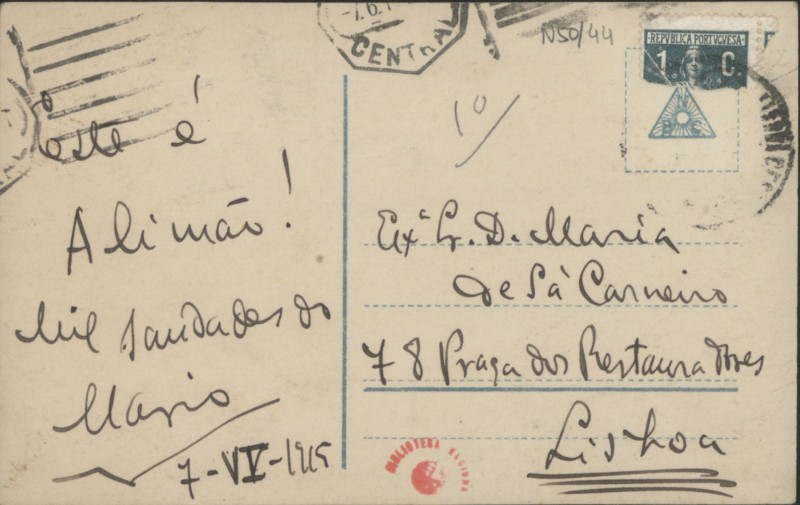 -7.6.1
CENTRAL
N50/44
REPVBLICA PORTVGVESA
1 C.
10
Este é
Alimão!
Mil saudades do
Mario
7-VI-1915
Exª Sr. D. Maria
de Sá Carneiro
78 Praça dos Restauradores
Lisboa
BIBLIOTECA NACIONAL